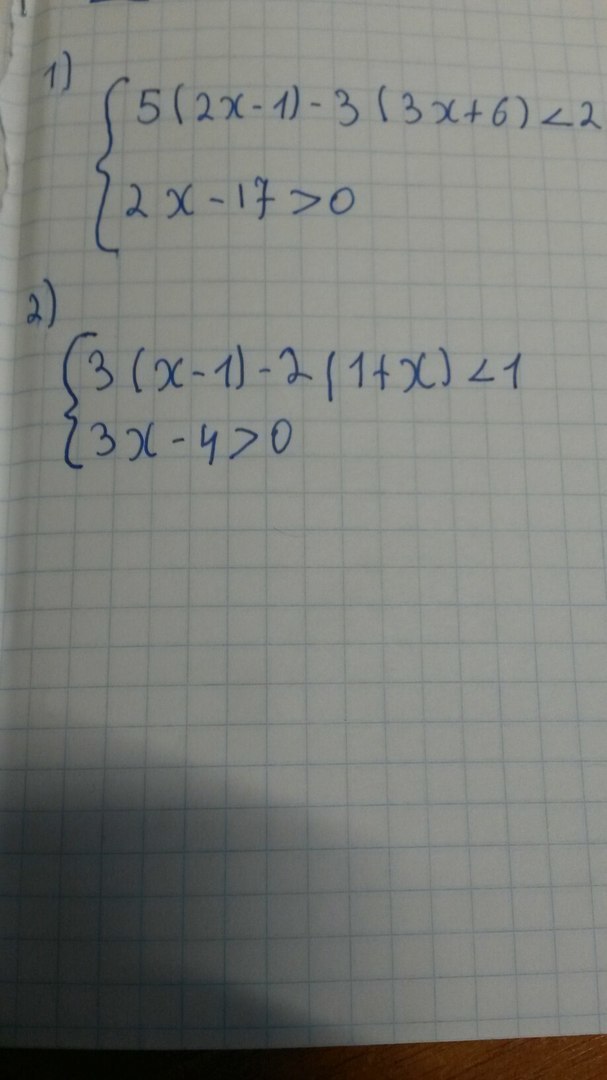 1)
5(2x-1)-3(3x+6)<2
2x-17>0
2)
3(x-1)-2(1+x)<1
3x-4>0